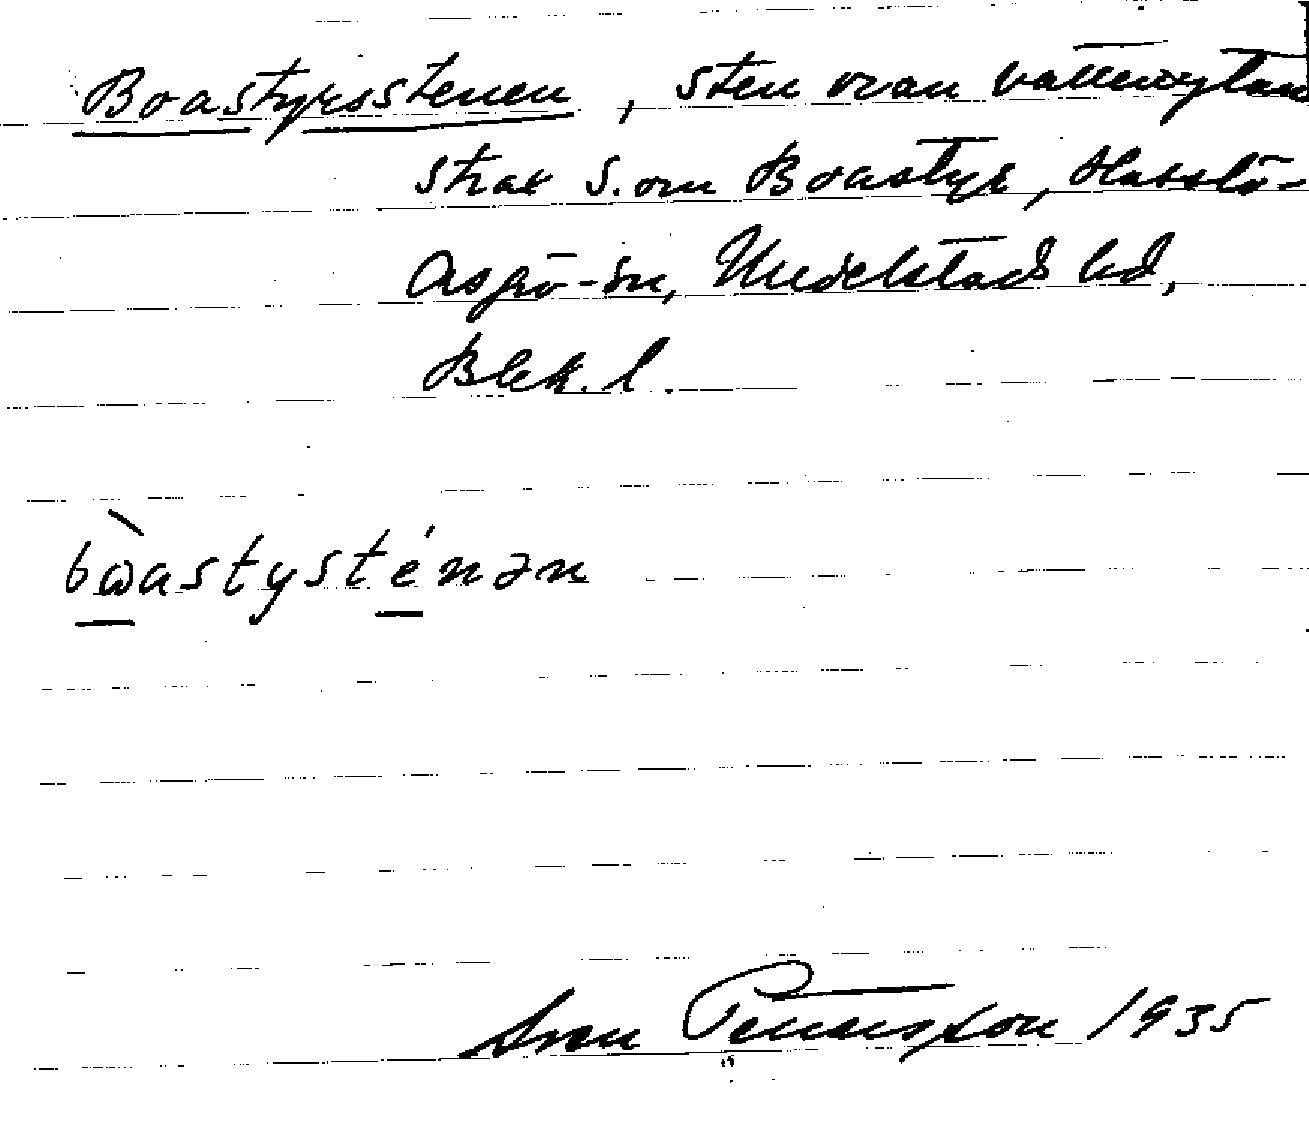 Boastyrsstenen, sten ovan vattenytan
strax S. om Boastyr, Hasslö-
Aspö-sn, Medelstads hd,
Blek. l.
bɷ̀astysténən
Sven Pettersson 1935